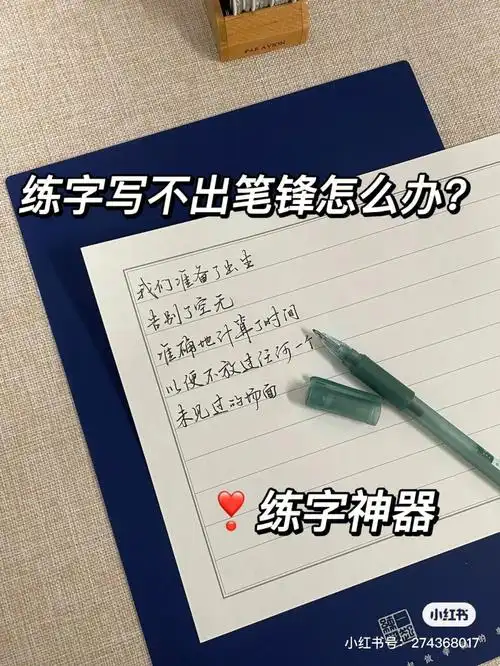 PAR AVION
练字写不出笔锋怎么办?
我们准备了出生
告别了空无
准确地计算了时间
以便不放过任何一个
未见过的场面
练字神器
小红书
小红书号：274368017